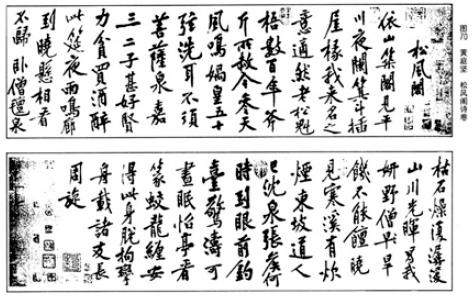 松風閣
依山築閣見平
川夜闌箕斗插
屋椽我來名之
意適然老松魁
梧數百年斧
斤所赦今參天
風鳴媧皇五十
弦洗耳不須
菩薩泉嘉
三二子甚好賢
力貧買酒醉
此筵夜雨鳴廊
到曉懸相看
不歸臥僧氈泉
枯石燥復潺湲
山川光暉為我
妍野僧早旱
饑不能饘曉
見寒溪有炊
煙東坡道人
已沈泉張侯何
時到眼前釣
臺驚濤可
晝眠怡亭看
篆蛟龍纏安
得此身脫拘攣
舟載諸友長
周旋
图70 黄庭坚 松风阁诗卷